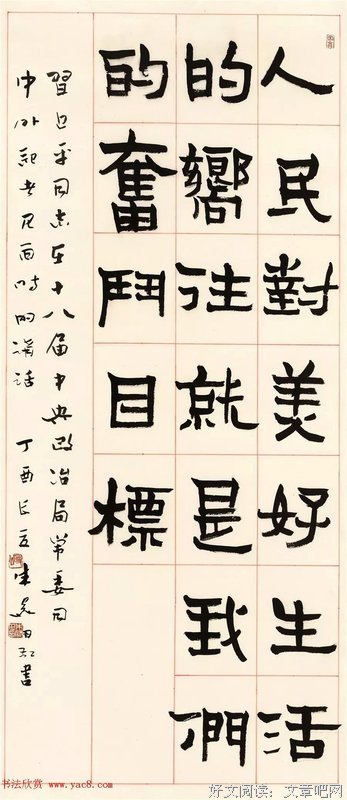 人民對美好生活
的嚮往就是我們
的奮鬥目標
習近平同志在十八届中央政治局常委同
中外記者見面時的講話 丁酉長夏 朱 書
书法欣赏 www.yac8.com
好文阅读：文章吧网